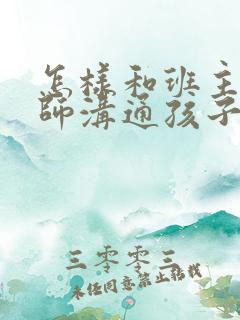 怎样和班主
師溝通孩子
三零零三
未任同意禁止转载